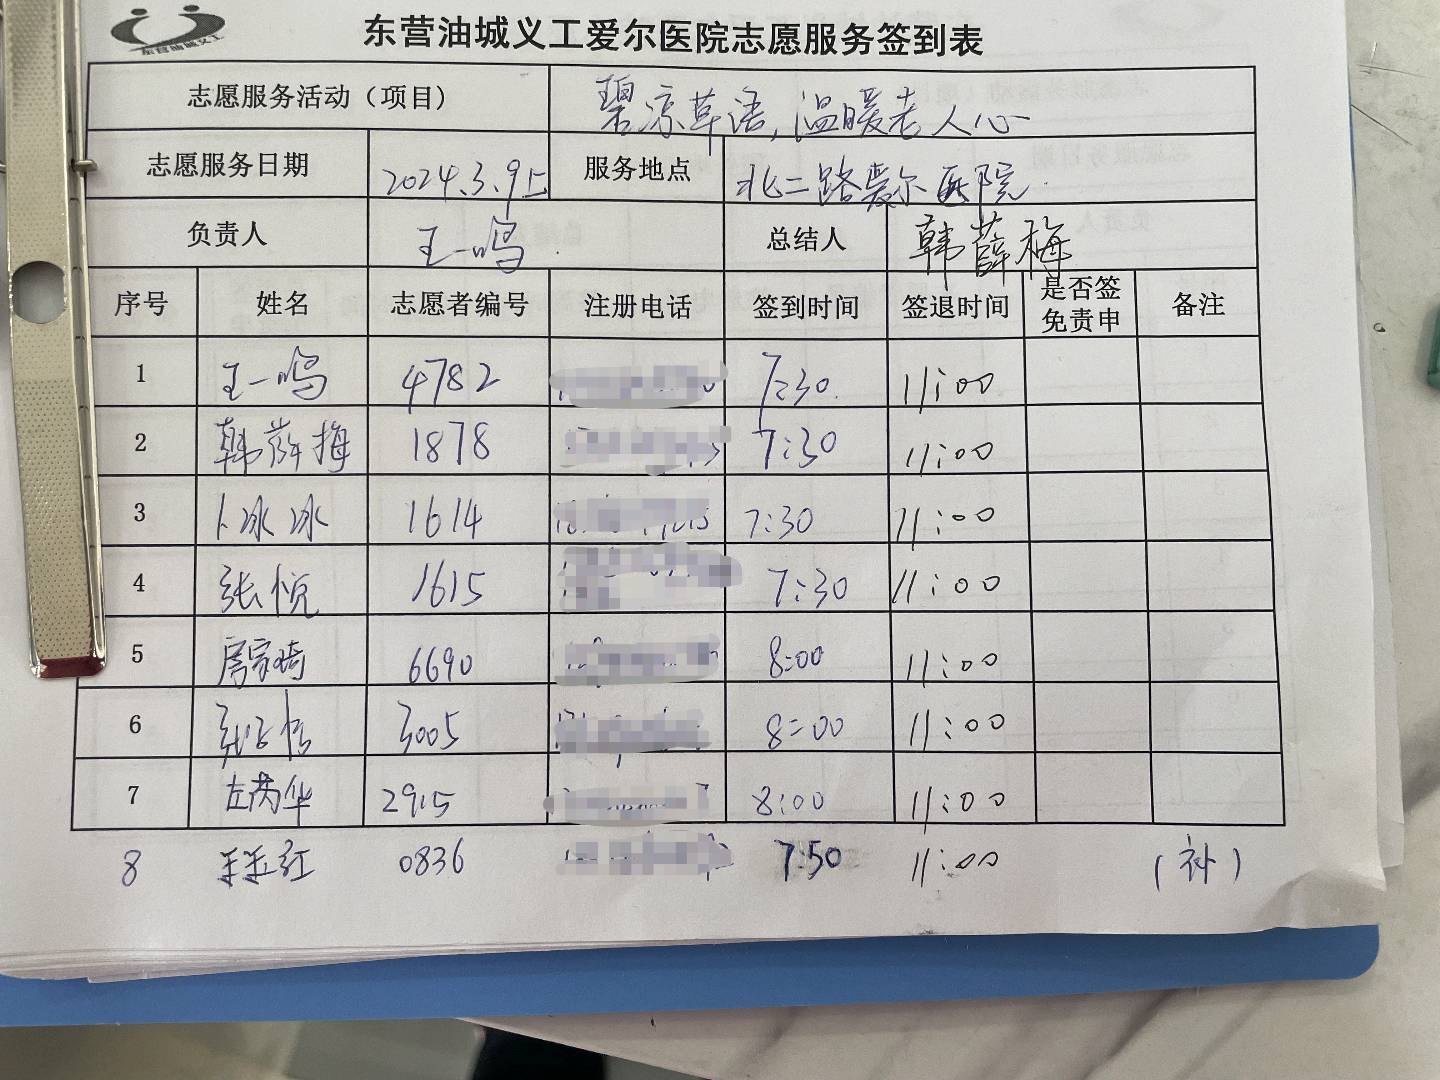 东营油城义工
东营油城义工爱尔医院志愿服务签到表
志愿服务活动（项目） 碧凉草语,温暖老人心
志愿服务日期 2024.3.9上 服务地点 北二路爱尔医院
负责人 王一鸣 总结人 韩薛梅
序号 姓名 志愿者编号 注册电话 签到时间 签退时间 是否签免责申 备注
1 王一鸣 4782 7:30 11:00
2 韩薛梅 1878 7:30 11:00
3 卜冰冰 1614 7:30 11:00
4 张悦 1615 7:30 11:00
5 6690 8:00 11:00
6 3005 8:00 11:00
7 左芮华 2915 8:00 11:00
8 0836 7:50 11:00 (补)